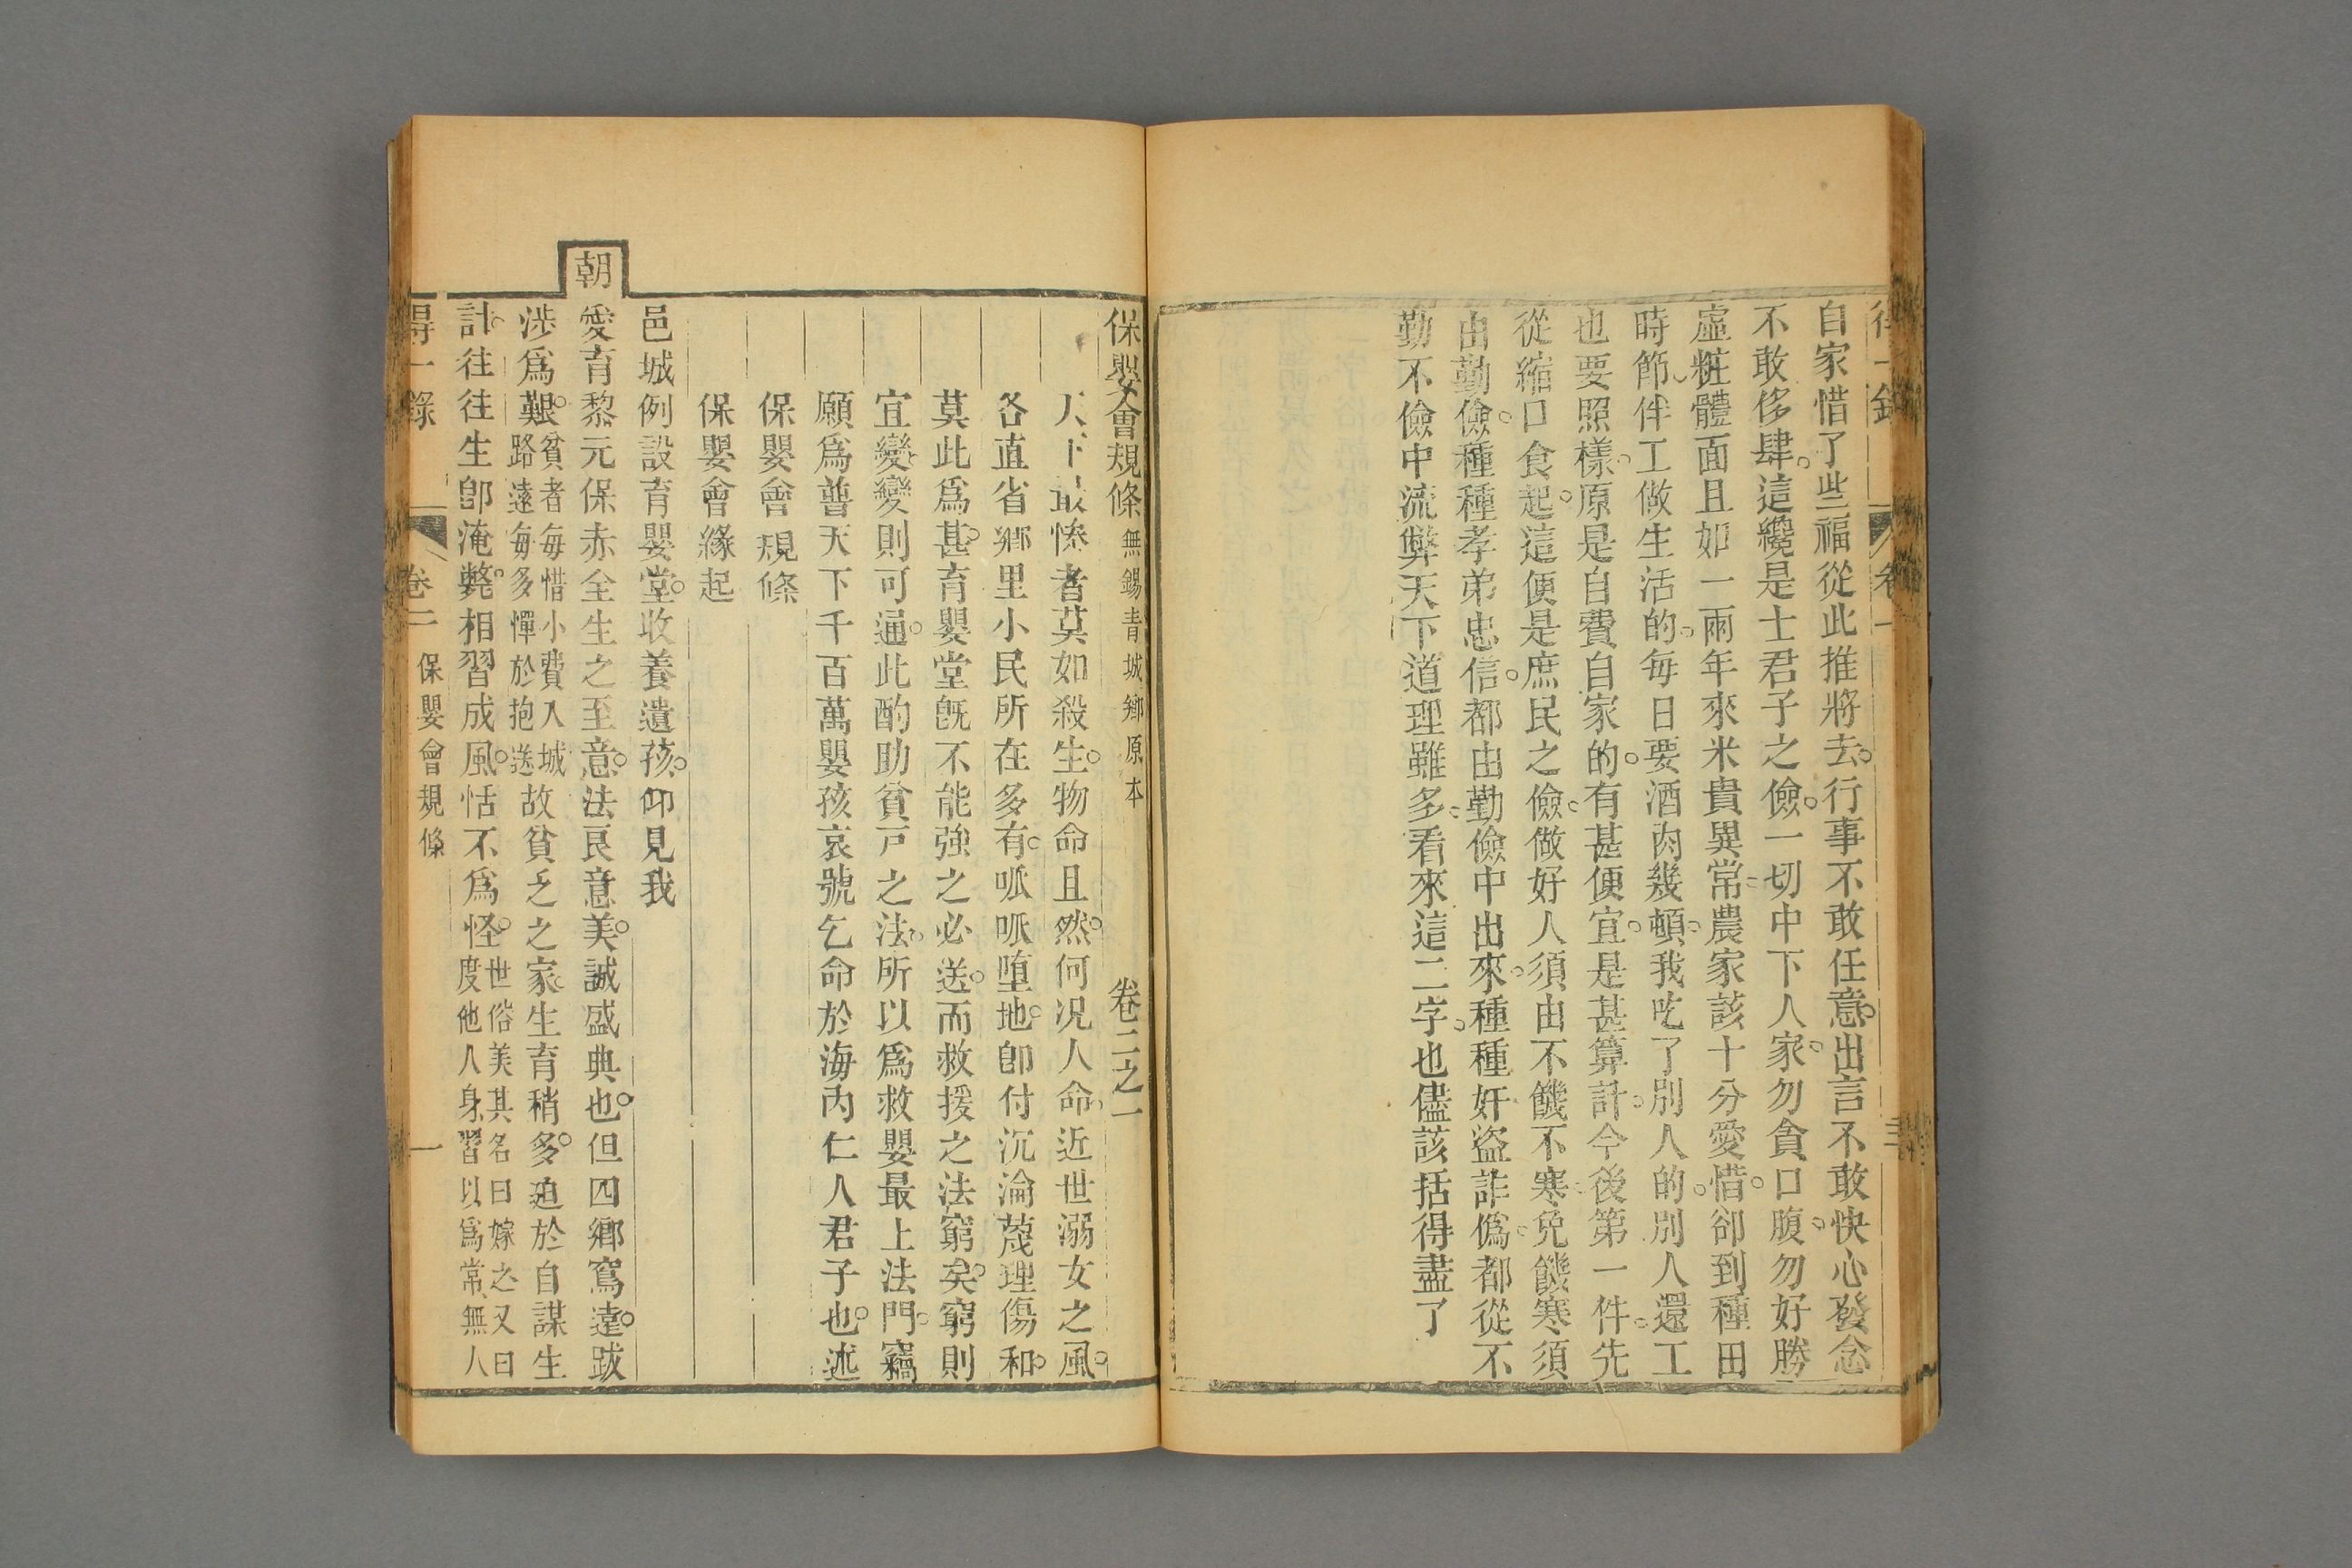 自家惜了些福從此推將去行事不敢任意出言不敢快心發念
不敢侈肆這纔是士君子之儉一切中下人家勿貪口腹勿好勝
虛粧體面且如一兩年來米貴異常農家該十分愛惜卻到種田
時節伴工做生活的每日要酒肉幾頓我吃了別人的別人還工
也要照樣原是自費自家的有甚便宜是甚算計今後第一件先
從縮口食起這便是庶民之儉做好人須由不饑不寒免饑寒須
由勤儉種種孝弟忠信都由勤儉中出來種種奸盜詐僞都從不
勤不儉中流弊天下道理雖多看來這二字也儘該括得盡了
保嬰會規條 無錫青城鄉原本 卷二之一
天下最慘者莫如殺生物命且然何況人命近世溺女之風
各直省鄉里小民所在多有呱呱墮地卽付沉淪蔑理傷和
莫此爲甚育嬰堂旣不能強之必送而救援之法窮矣窮則
宜變變則可通此酌助貧戸之法所以爲救嬰最上法門竊
願爲普天下千百萬嬰孩哀號乞命於海內仁人君子也述
保嬰會規條
保嬰會緣起
邑城例設育嬰堂收養遺孩仰見我
朝愛育黎元保赤全生之至意法良意美誠盛典也但四鄉窵遠跋
涉爲艱 貧者每惜小費入城路遠每多憚於抱送 故貧乏之家生育稍多迫於自謀生
計往往生卽淹斃相習成風恬不爲怪 世俗美其名曰嫁之又曰度他人身習以爲常無人
得一錄 卷二 保嬰會規條 一